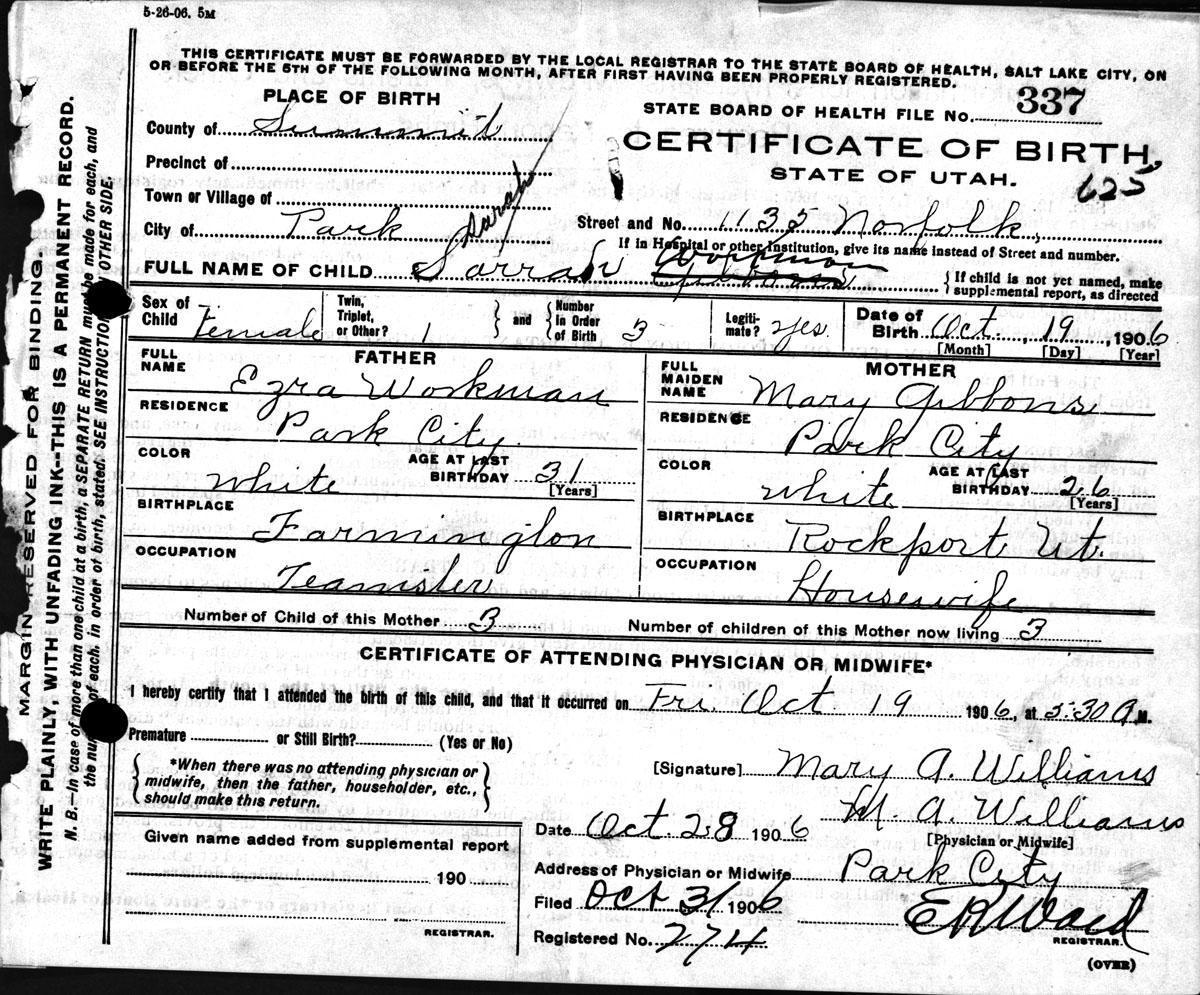 5-26-06. 5M
THIS CERTIFICATE MUST BE FORWARDED BY THE LOCAL REGISTRAR TO THE STATE BOARD OF HEALTH, SALT LAKE CITY, ON
OR BEFORE THE 5TH OF THE FOLLOWING MONTH, AFTER FIRST HAVING BEEN PROPERLY REGISTERED.
PLACE OF BIRTH
STATE BOARD OF HEALTH FILE No. 337
County of Summit
CERTIFICATE OF BIRTH,
Precinct of
STATE OF UTAH.
625
Town or Village of
Sarah
City of Park
Street and No. 1135 Norfolk,
If in Hospital or other Institution, give its name instead of Street and number.
FULL NAME OF CHILD Sarrah Workman
{ If child is not yet named, make
supplemental report, as directed
Sex of Child Female
Twin, Triplet, or Other? 1
} and {
Number in Order of Birth 3
Legiti-mate? Yes
Date of Birth Oct. 19, 1906
[Month] [Day] [Year]
FATHER
FULL NAME Ezra Workman
RESIDENCE Park City
COLOR White
AGE AT LAST BIRTHDAY 31
[Years]
BIRTHPLACE Farmington
OCCUPATION Teamster
MOTHER
FULL MAIDEN NAME Mary Gibbons
RESIDENCE Park City
COLOR White
AGE AT LAST BIRTHDAY 26
[Years]
BIRTHPLACE Rockport Ut.
OCCUPATION Housewife
Number of Child of this Mother 3
Number of children of this Mother now living 3
CERTIFICATE OF ATTENDING PHYSICIAN OR MIDWIFE*
I hereby certify that I attended the birth of this child, and that it occurred on Fri. Oct 19 1906, at 5:30 A.M.
Premature or Still Birth? (Yes or No)
{ *When there was no attending physician or
midwife, then the father, householder, etc.,
should make this return. }
[Signature] Mary A. Williams
M. A. Williams
[Physician or Midwife]
Date Oct. 28 1906
Given name added from supplemental report
190
REGISTRAR.
Address of Physician or Midwife Park City
Filed Oct 31 1906
E R Ward
REGISTRAR.
Registered No. 274
(OVER)
MARGIN RESERVED FOR BINDING.
WRITE PLAINLY, WITH UNFADING INK--THIS IS A PERMANENT RECORD.
N. B.—In case of more than one child at a birth, a SEPARATE RETURN must be made for each, and
the number of each, in order of birth, stated. SEE INSTRUCTIONS ON OTHER SIDE.